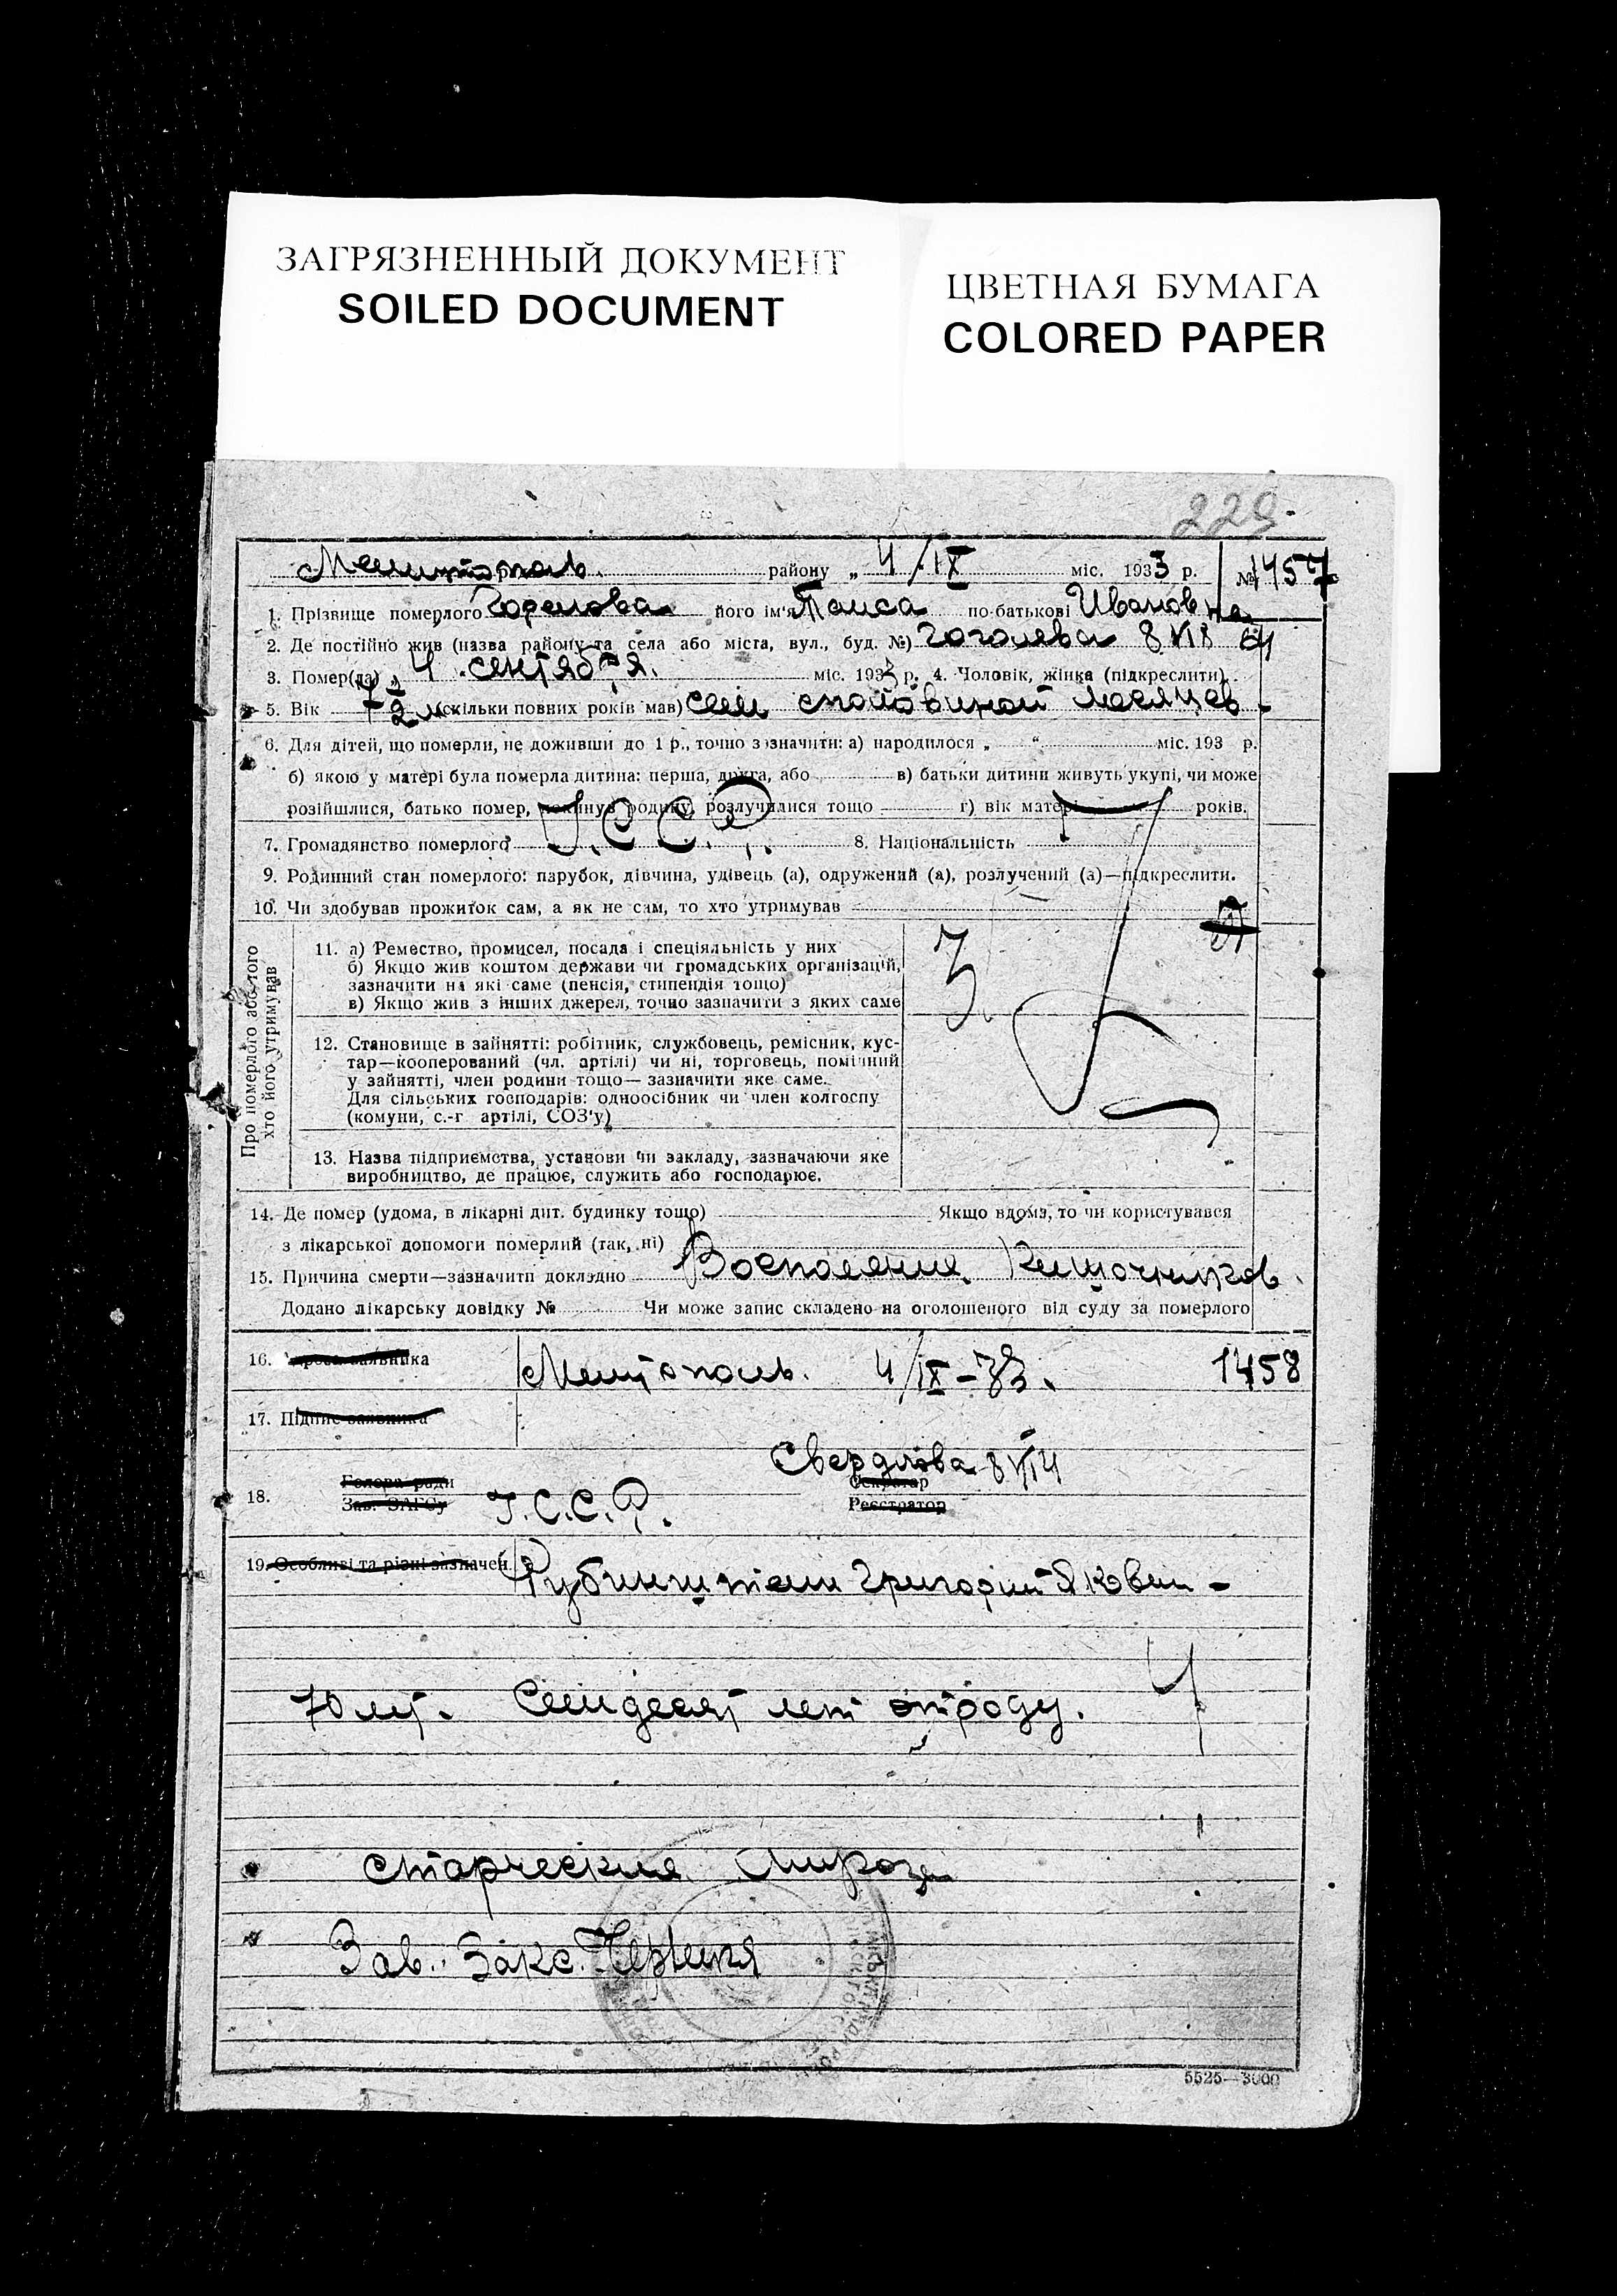 ЗАГРЯЗНЕННЫЙ ДОКУМЕНТ
SOILED DOCUMENT
ЦВЕТНАЯ БУМАГА
COLORED PAPER
229
Мелитополь району „ 4/IX міс. 1933 р. № 1457
1. Прізвище померлого його ім'я по-батькові Ивановна
2. Де постійно жив (назва району та села або міста, вул., буд. №)
3. Помер(ла) „ 4 сентября. міс. 1933 р. 4. Чоловік, жінка (підкреслити)
5. Вік 7½ м (скільки повних років мав) семь споловиной месяцев
6. Для дітей, що померли, не доживши до 1 р., точно зазначити: а) народилося „ “ міс. 193 р.
б) якою у матері була померла дитина: перша, друга, або в) батьки дитини живуть укупі, чи може
розійшлися, батько помер, покинув родину, розлучилися тощо г) вік матері років.
7. Громадянство померлого У.С.С.Р. 8. Національність
9. Родинний стан померлого: парубок, дівчина, удівець (а), одружений (а), розлучений (а)—підкреслити.
10. Чи здобував прожиток сам, а як не сам, то хто утримував
Про померлого або того
хто його утримував
11. а) Ремество, промисел, посада і спеціяльність у них
б) Якщо жив коштом держави чи громадських організацій,
зазначити на які саме (пенсія, стипендія тощо)
в) Якщо жив з інших джерел, точно зазначити з яких саме
12. Становище в занятті: робітник, службовець, ремісник, кус-
тар—кооперований (чл. артілі) чи ні, торговець, помічний
у занятті, член родини тощо— зазначити яке саме.
Для сільських господарів: одноосібник чи член колгоспу
(комуни, с.-г артілі, СОЗ'у)
13. Назва підприємства, установи чи закладу, зазначаючи яке
виробництво, де працює, служить або господарює.
14. Де помер (удома, в лікарні дит. будинку тощо) Якщо вдома, то чи користувався
з лікарської допомоги померлий (так, ні)
15. Причина смерти—зазначити докладно Воспаления Кишочников
Додано лікарську довідку № Чи може запис складено на оголошеного від суду за померлого
16. Адреса заявника Мелитополь. 4/IX-33. 1458
17. Підпис заявника
Свердлова
18. Голова ради
Зав. ЗАГСу У.С.С.Р.
Секретар
Реєстратор
19. Особливі та різні зазначен. Рубинштейн Григорий Яковл-
70 лет. Семдесят лет отроду.
старческие
Зав. Загс.
5525—3000